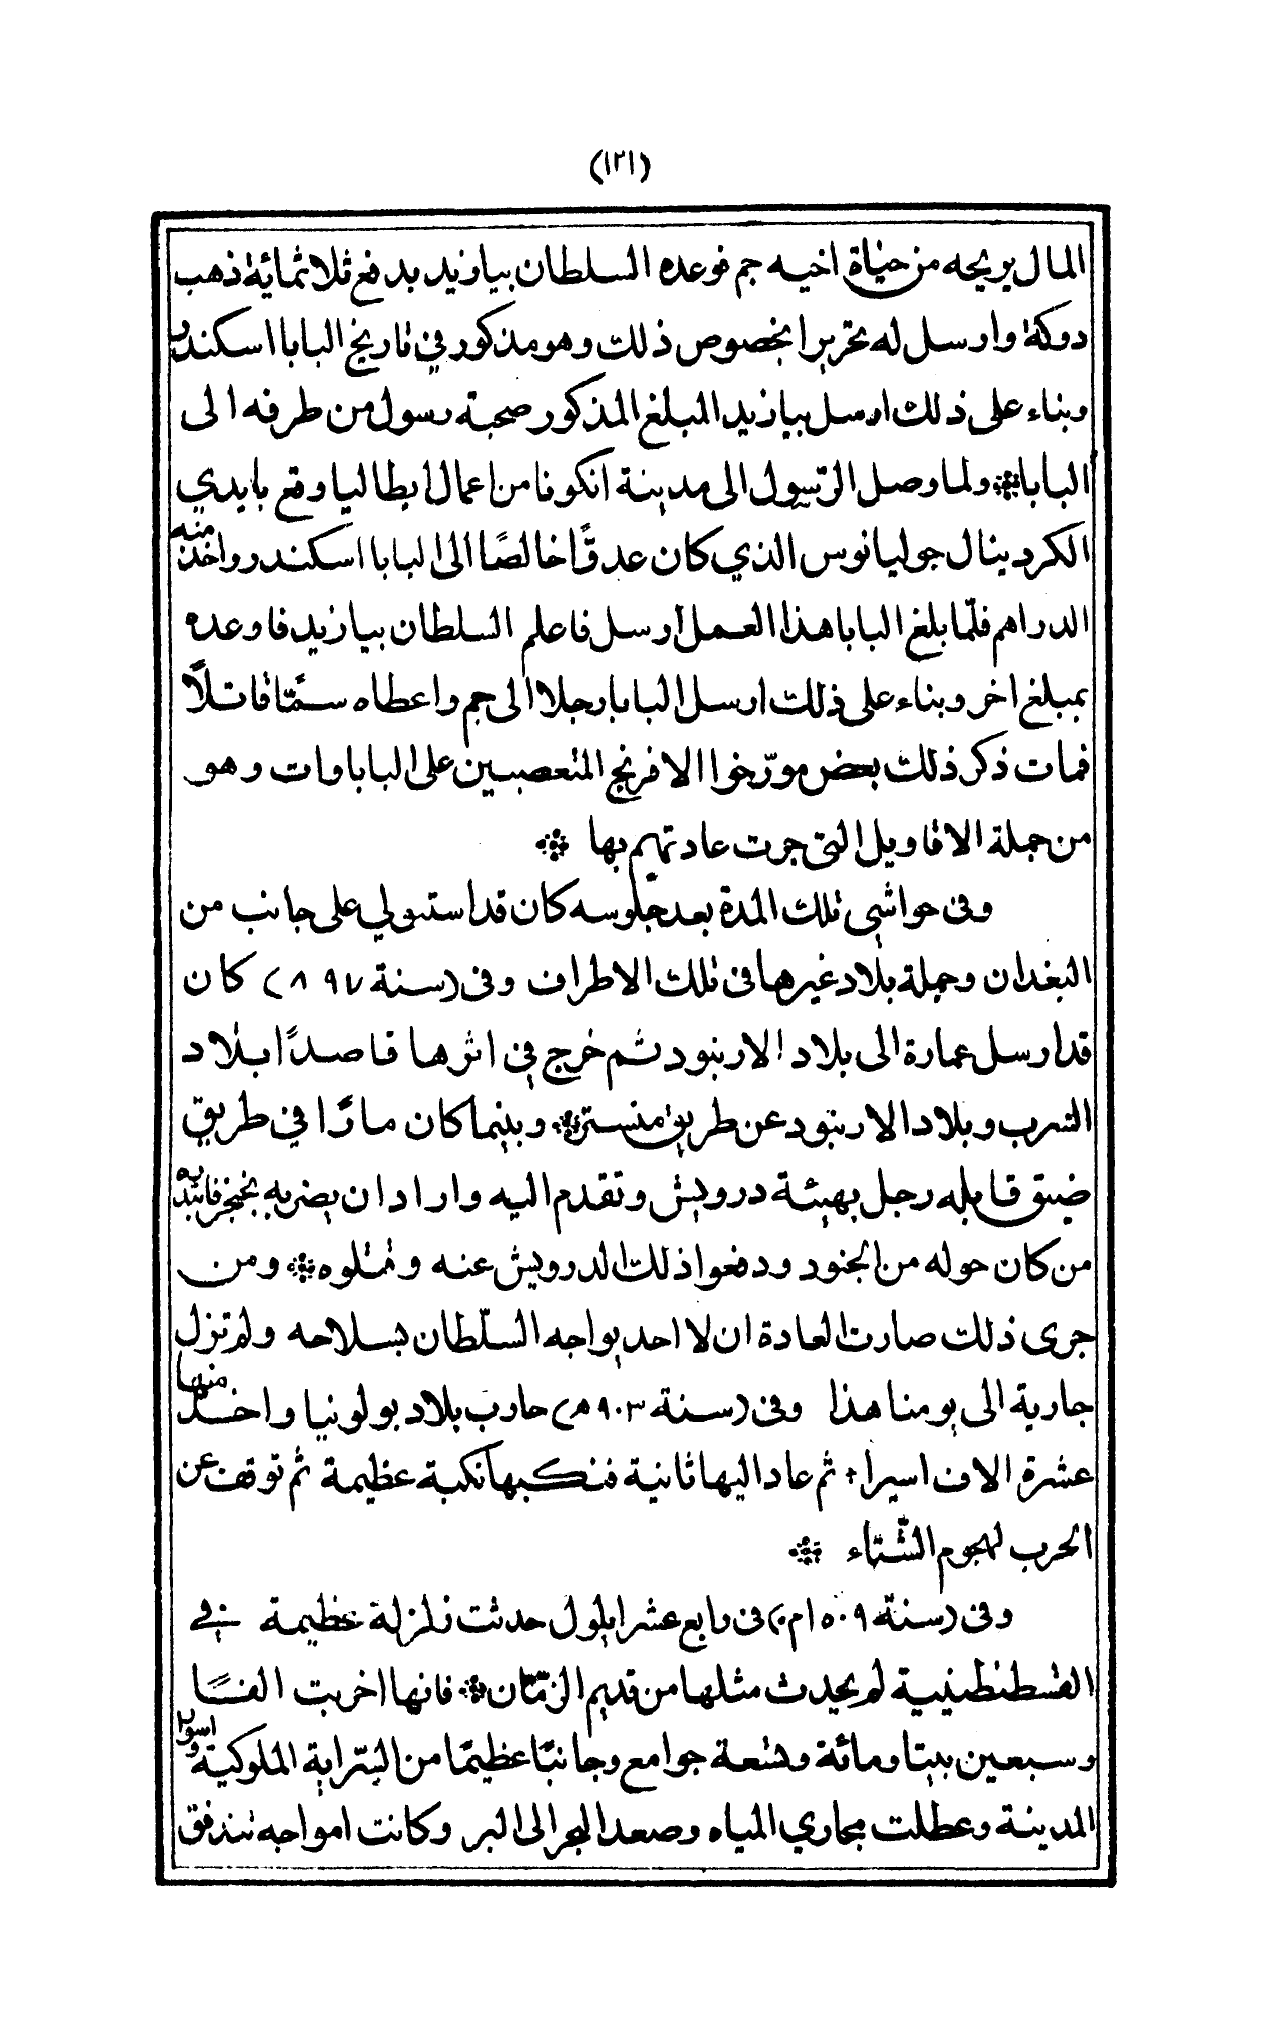 (١٢١)
المال يريحه من حياة اخيه جم فوعده السلطان بيازيد بدفع ثلاثمائة ذهب
دوكة وارسل له تحريرا بخصوص ذلك وهو مذكور في تاريخ البابا اسكندر
وبناء على ذلك ارسل بيازيد المبلغ المذكور صحبة رسول من طرفه الى
البابا ۞ ولما وصل الرّسول الى مدينة انكونا من اعمال ايطاليا وقع بايدي
الكردينال جوليانوس الذي كان عدوًّا خالصًا الى البابا اسكندر واخذ منه
الدراهم فلمّا بلغ البابا هذا العمل ارسل فاعلم السلطان بيازيد فاوعده
بمبلغ اخر وبناء على ذلك ارسل البابا رجلا الى جم واعطاه سمًّا قاتلاً
فمات ذكر ذلك بعض مورّخوا الافرنج المتعصبين على الباباوات وهو
من جملة الاقاويل التي جرت عادتهم بها ۞
وفي حواشي تلك المدة بعد جلوسه كان قد استولي على جانب من
البغدان وجملة بلاد غيرها في تلك الاطراف وفي (سنة ٨٩٧) كان
قد ارسل عمارة الى بلاد الارنبود ثم خرج في اثرها قاصدًا بلاد
السرب وبلاد الارنبود عن طريق منستر ۞ وبينما كان مارًّا في طريق
ضيق قابله رجل بهيئة درويش وتقدم اليه واراد ان يضربه بخنجر فابتدره
من كان حوله من الجنود ودفعوا ذلك الدرويش عنه وقتلوه ۞ ومن
جرى ذلك صارت العادة ان لا احد يواجه السلّطان بسلاحه ولم تزل
جارية الى يومنا هذا وفي (سنة ٩٠٣ ه) حارب بلاد بولونيا واخذ منها
عشرة الاف اسيرا ثم عاد اليها ثانية فنكبها نكبة عظيمة ثم توقف عن
الحرب لهجوم الشّتاء ۞
وفي (سنة ١٥٠٩ م) في رابع عشر ايلول حدثت زلزلة عظيمة في
القسطنطينية لم يحدث مثلها من قديم الزّمان ۞ فانها اخربت الفًا
وسبعين بيتا ومائة وتسعة جوامع وجانبًا عظيمًا من السّراية الملوكية واسوار
المدينة وعطلت مجاري المياه وصعد البحر الى البر وكانت امواجه تندفق